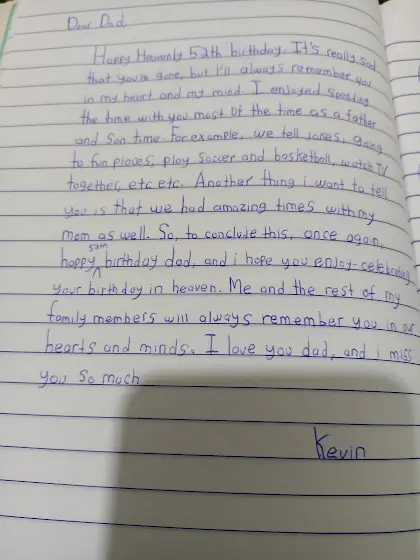 Dear Dad,
Happy Heavenly 52th birthday. It's really sad
that you're gone, but I'll always remember you
in my heart and my mind. I enjoyed spending
the time with you most of the time as a father
and son time. For example, we tell jokes, going
to fun places, play soccer and basketball, watch TV
together, etc etc. Another thing i want to tell
you is that we had amazing times with my
mom as well. So, to conclude this, once again,
happy 52th birthday dad, and i hope you enjoy celebrating
your birthday in heaven. Me and the rest of my
family members will always remember you in our
hearts and minds. I love you dad, and i miss
you so much
Kevin